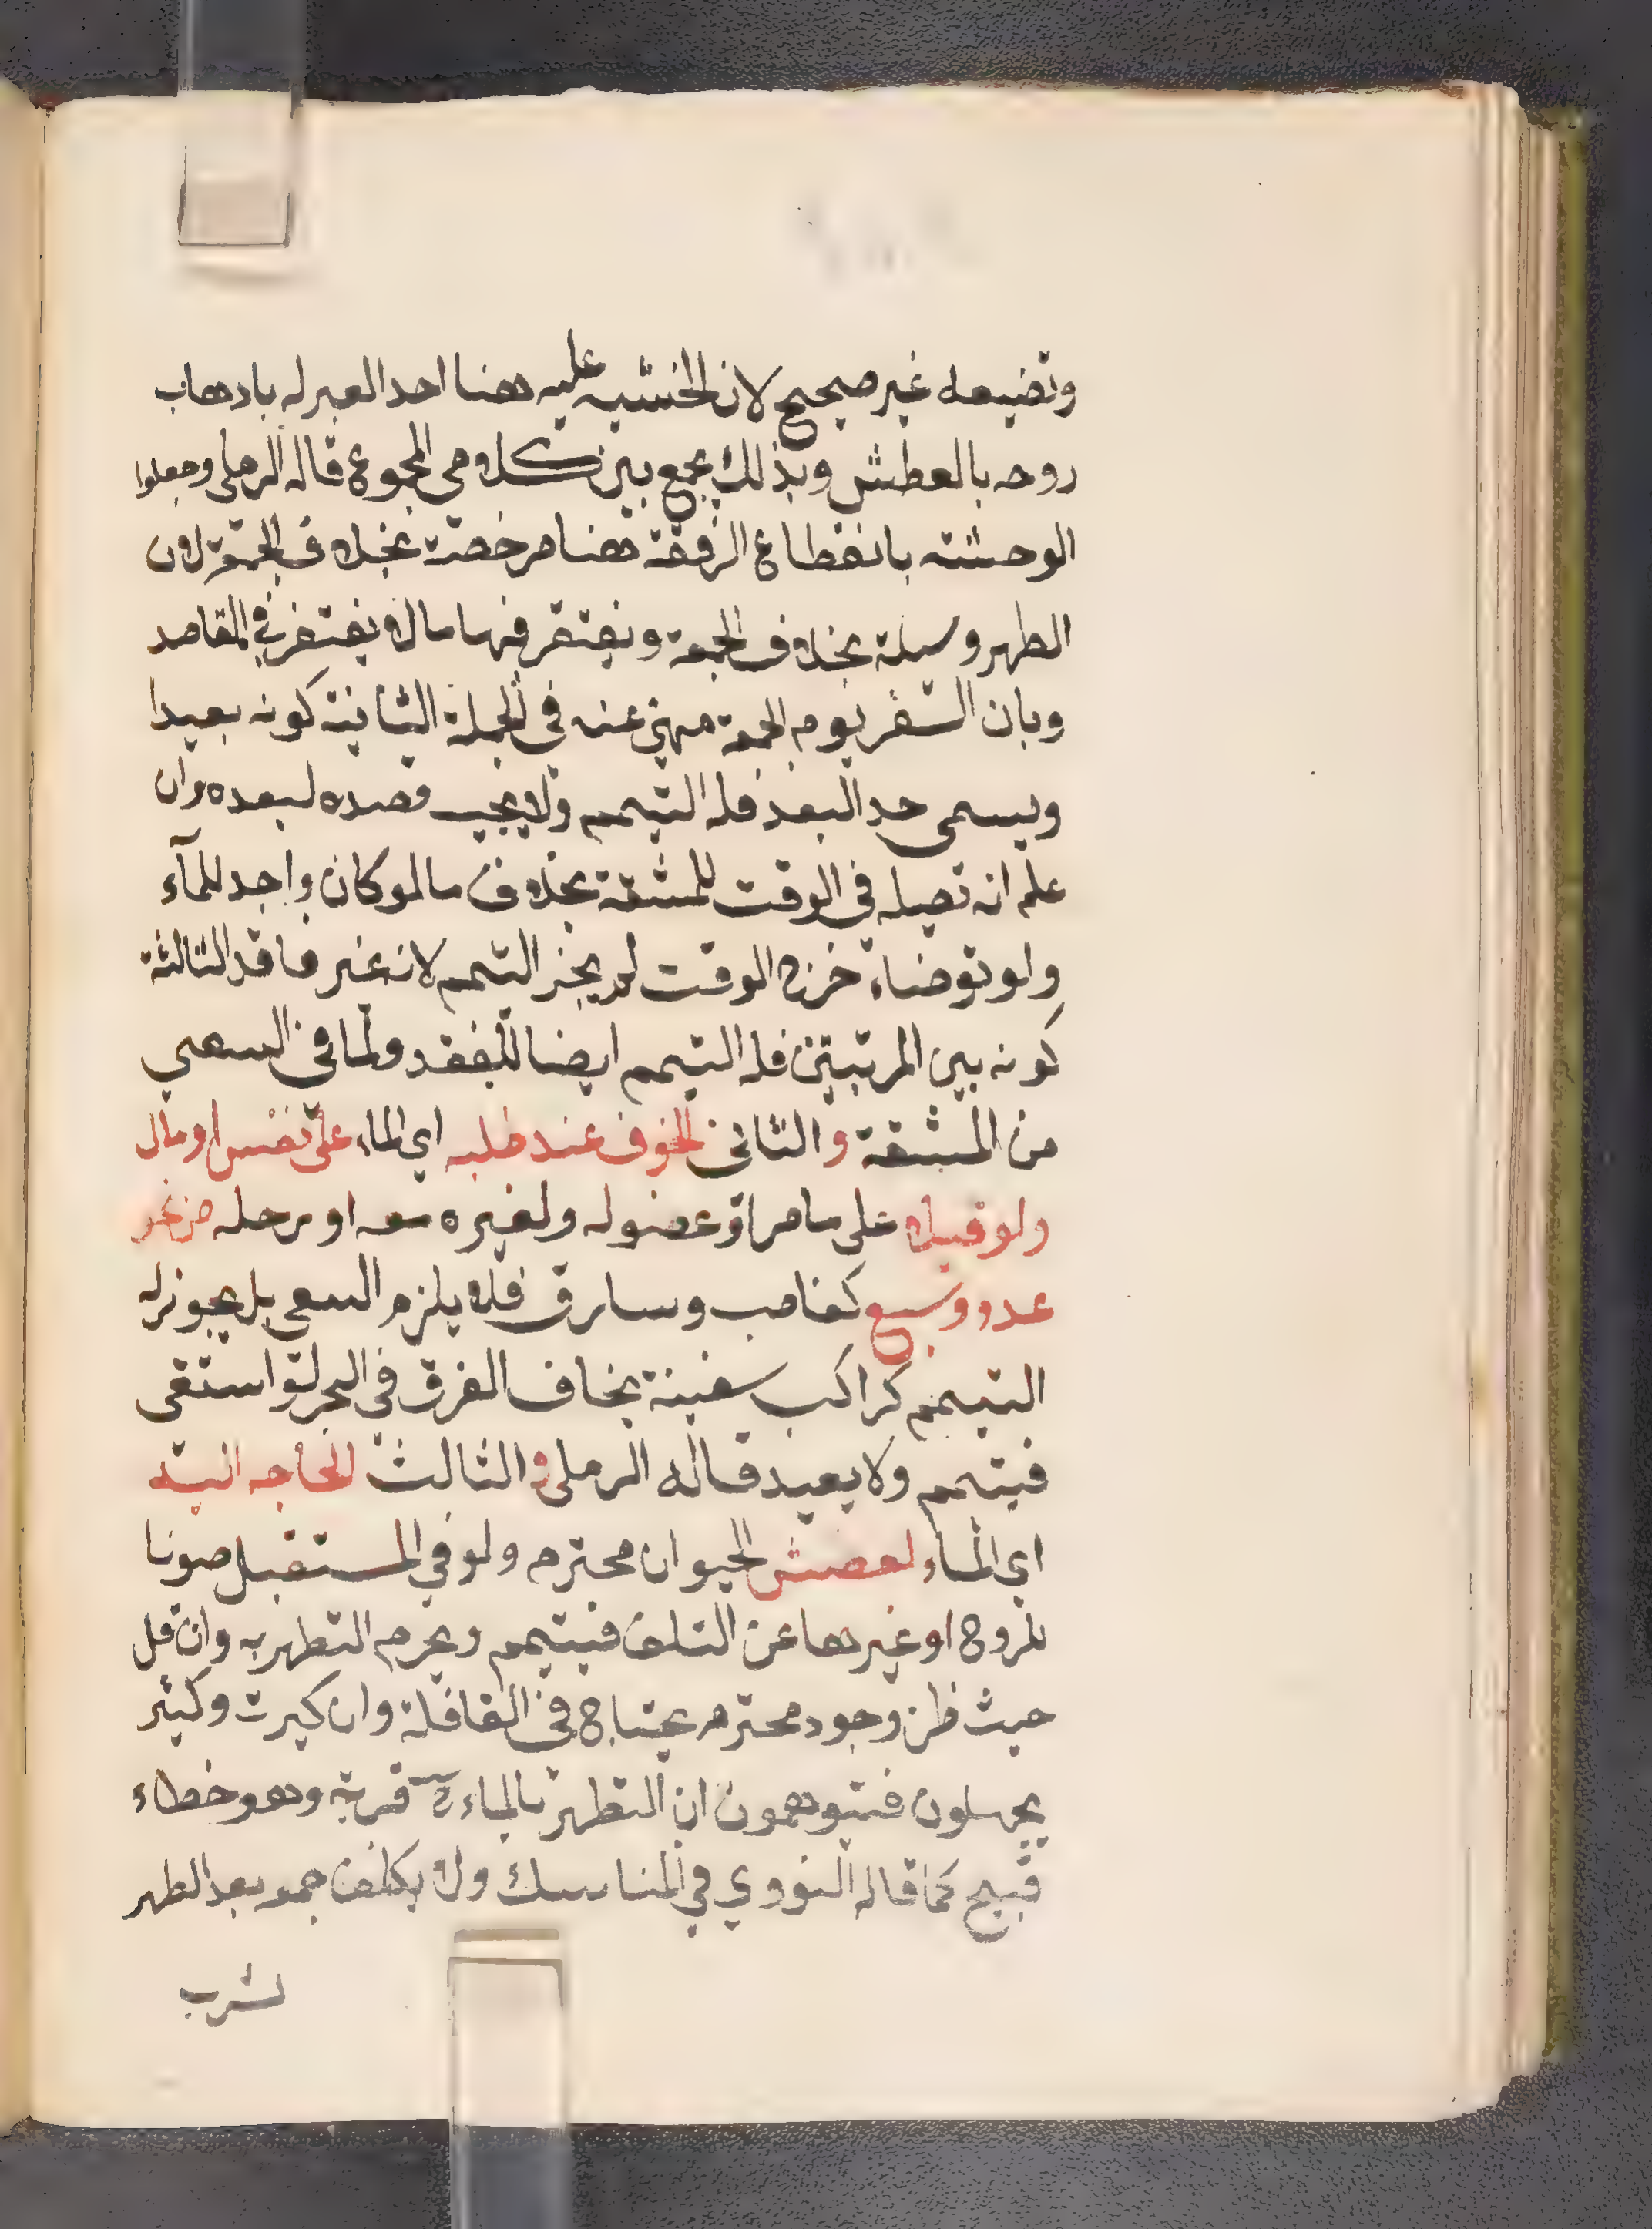 وتضيعه غير صحيح لان الخشيه عليه هنا احد العبر له باذهاب
روحه بالعطش وبذلك يجمع بين كلامي المجموع قاله الرملي وجعلوا
الوحشته بانقطاع الرفقة هنا مرخصة بخلاف الجمعة لان
الطهر وسيلة بخلاف الجمعة ويغتفر فيها ما لا يغتفر في المقاصد
وبان السفر يوم الجمعة منهي عنه في الجملة الثانية كونه بعيدا
ويسمى حد البعد فله التيمم ولا يجب قصده لبعده وان
علم انه تصيله في الوقت للمشقة بخلاف ما لموكان واجد للمآء
ولو توضاء خرج الوقت لم يجز التيمم لانه غير فاقد الثالثة
كونه بين المرتبتين فله التيمم ايضا للفقد ولما في السعي
من المشقة والثاني الخوف عند طلبه اي الماء على نفس او مال
ولو قبلاه على ما مر او عضو له ولغيره معه او برحله من نحو
عدو وسبع كغاصب وسارق فلا يلزم السعي بل يجوز له
التيمم كراكب سفينة يخاف الغرق في البحر لو استقى
فيتيمم ولا يعيد قاله الرملي و الثالث الحاجه اليه
اي الماء لعطش الحيوان محترم ولو في المستقبل صونا
للروح او غيرها عن التلف فيتيمم ويحرم التطهر به وان قل
حيث ظن وجود محترم يحتاج في القافلة وان كبرت وكثير
يجهلون فيتوهمون ان التطهر بالماء ح قربة وهو خطاء
قبيح كما قاله النووي في المناسك ولا يكلف جمعه بعد الطهر
لشرب